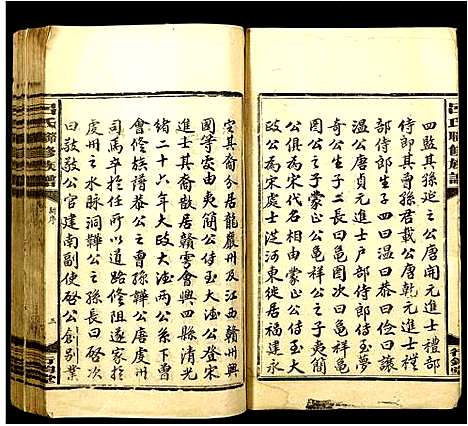 呂氏聯修族譜
四監其孫延之公唐開元進士禮部
侍郎其曾孫君載公唐乾元進士禮
部侍郎生子四曰溫曰恭曰儉曰讓
溫公唐貞元進士戶部侍郎侍玉夢
奇公生子二長曰龜圖次曰龜祥龜
圖公生子蒙正公龜祥公之子夷簡
公俱爲宋代名相由蒙正公侍玉大
公爲宋處士從河東徙居福建永
定其裔分居龍巖州及江西贛州興
國等處由夷簡公侍玉大漟公登宋
進士其裔散居贛雩會興四縣清光
緒二十六年大攺大漟兩公系下曽
修族譜卷公之曽孫韡公唐虔州
司馬卒於任所以道路修阻遂家於
虔州之水脉洞韡公之孫長曰慶次
曰敥敥公官建南副使啓公創别業
呂氏聯修族譜
新序
三